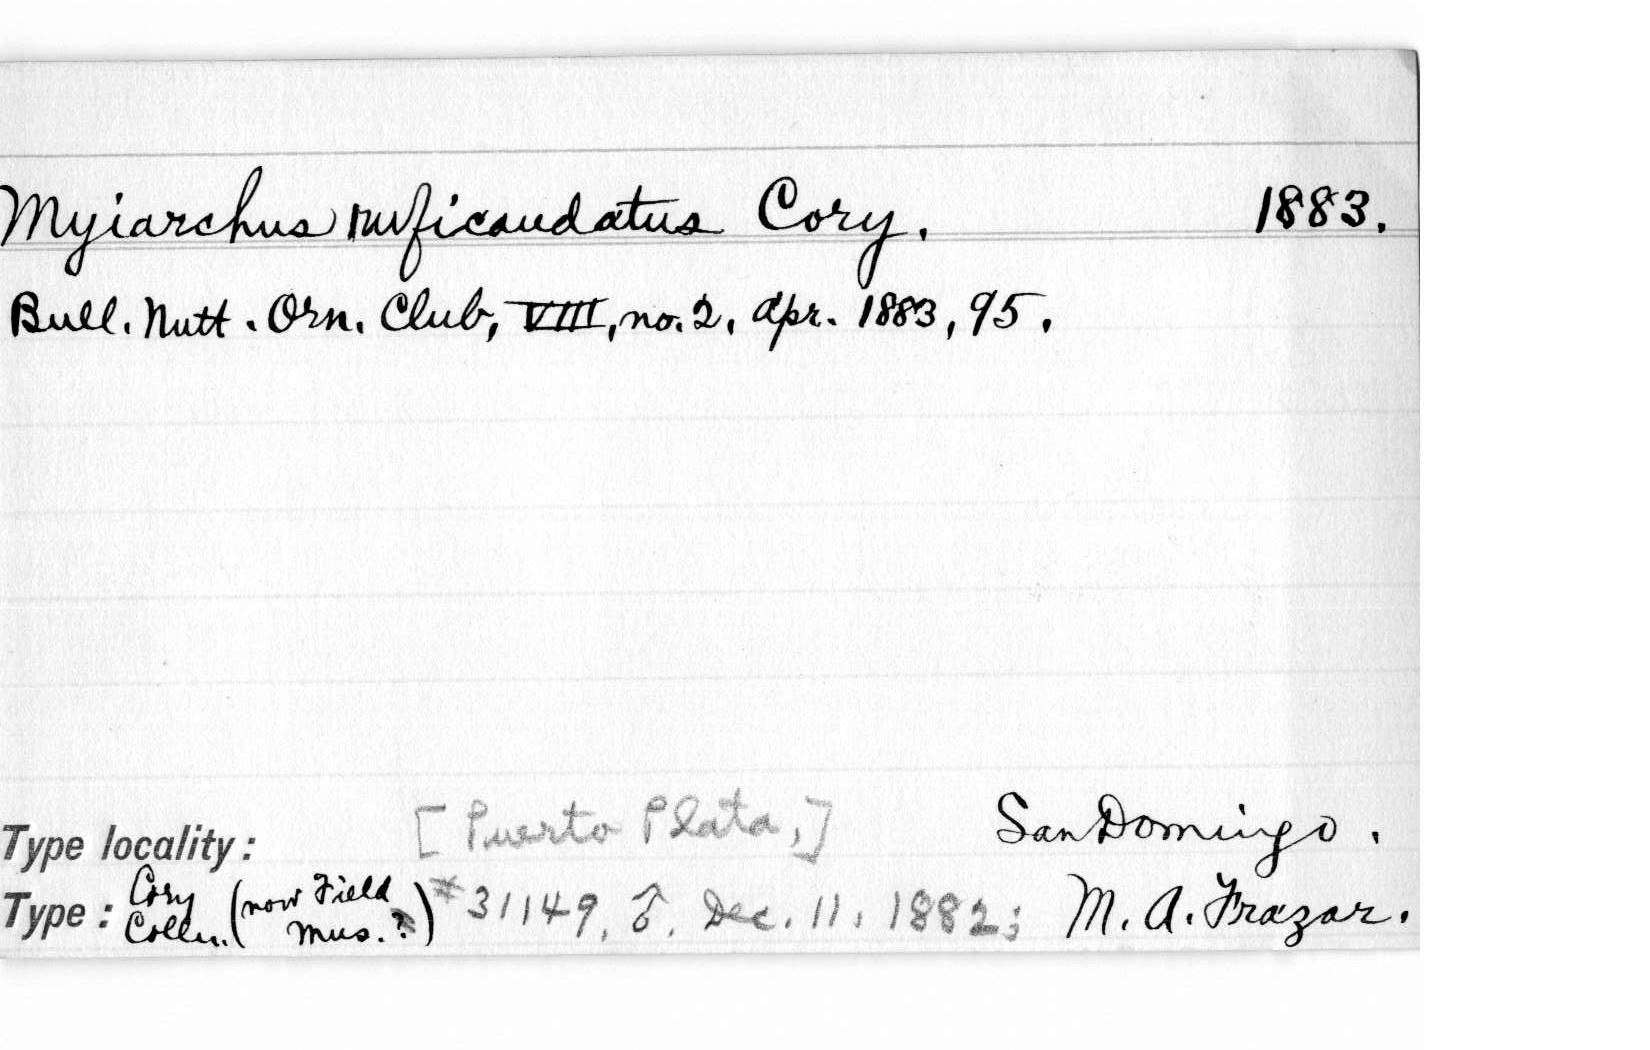 Myiarchus ruficaudatus Cory. 1883.
Bull. Nutt. Orn. Club, VIII, no. 2, Apr. 1883, 95.
Type locality: [Puerto Plata,] San Domingo.
Type: Cory Colln. (now Field Mus.?) #31149, ♂, Dec. 11, 1882; M. A. Frazar.